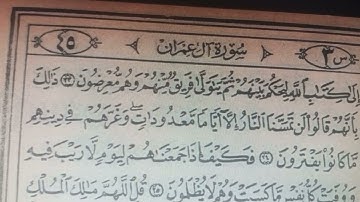 ٤٥ سُورَةُ آلِ عِمْرَان ٣ س
إِلَىٰ كِتَابِ اللَّهِ لِيَحْكُمَ بَيْنَهُمْ ثُمَّ يَتَوَلَّىٰ فَرِيقٌ مِّنْهُمْ وَهُم مُّعْرِضُونَ ﴿٢٣﴾ ذَٰلِكَ
بِأَنَّهُمْ قَالُوا لَن تَمَسَّنَا النَّارُ إِلَّا أَيَّامًا مَّعْدُودَاتٍ ۖ وَغَرَّهُمْ فِي دِينِهِم
مَّا كَانُوا يَفْتَرُونَ ﴿٢٤﴾ فَكَيْفَ إِذَا جَمَعْنَاهُمْ لِيَوْمٍ لَّا رَيْبَ فِيهِ
وَوُفِّيَتْ كُلُّ نَفْسٍ مَّا كَسَبَتْ وَهُمْ لَا يُظْلَمُونَ ﴿٢٥﴾ قُلِ اللَّهُمَّ مَالِكَ الْمُلْكِ